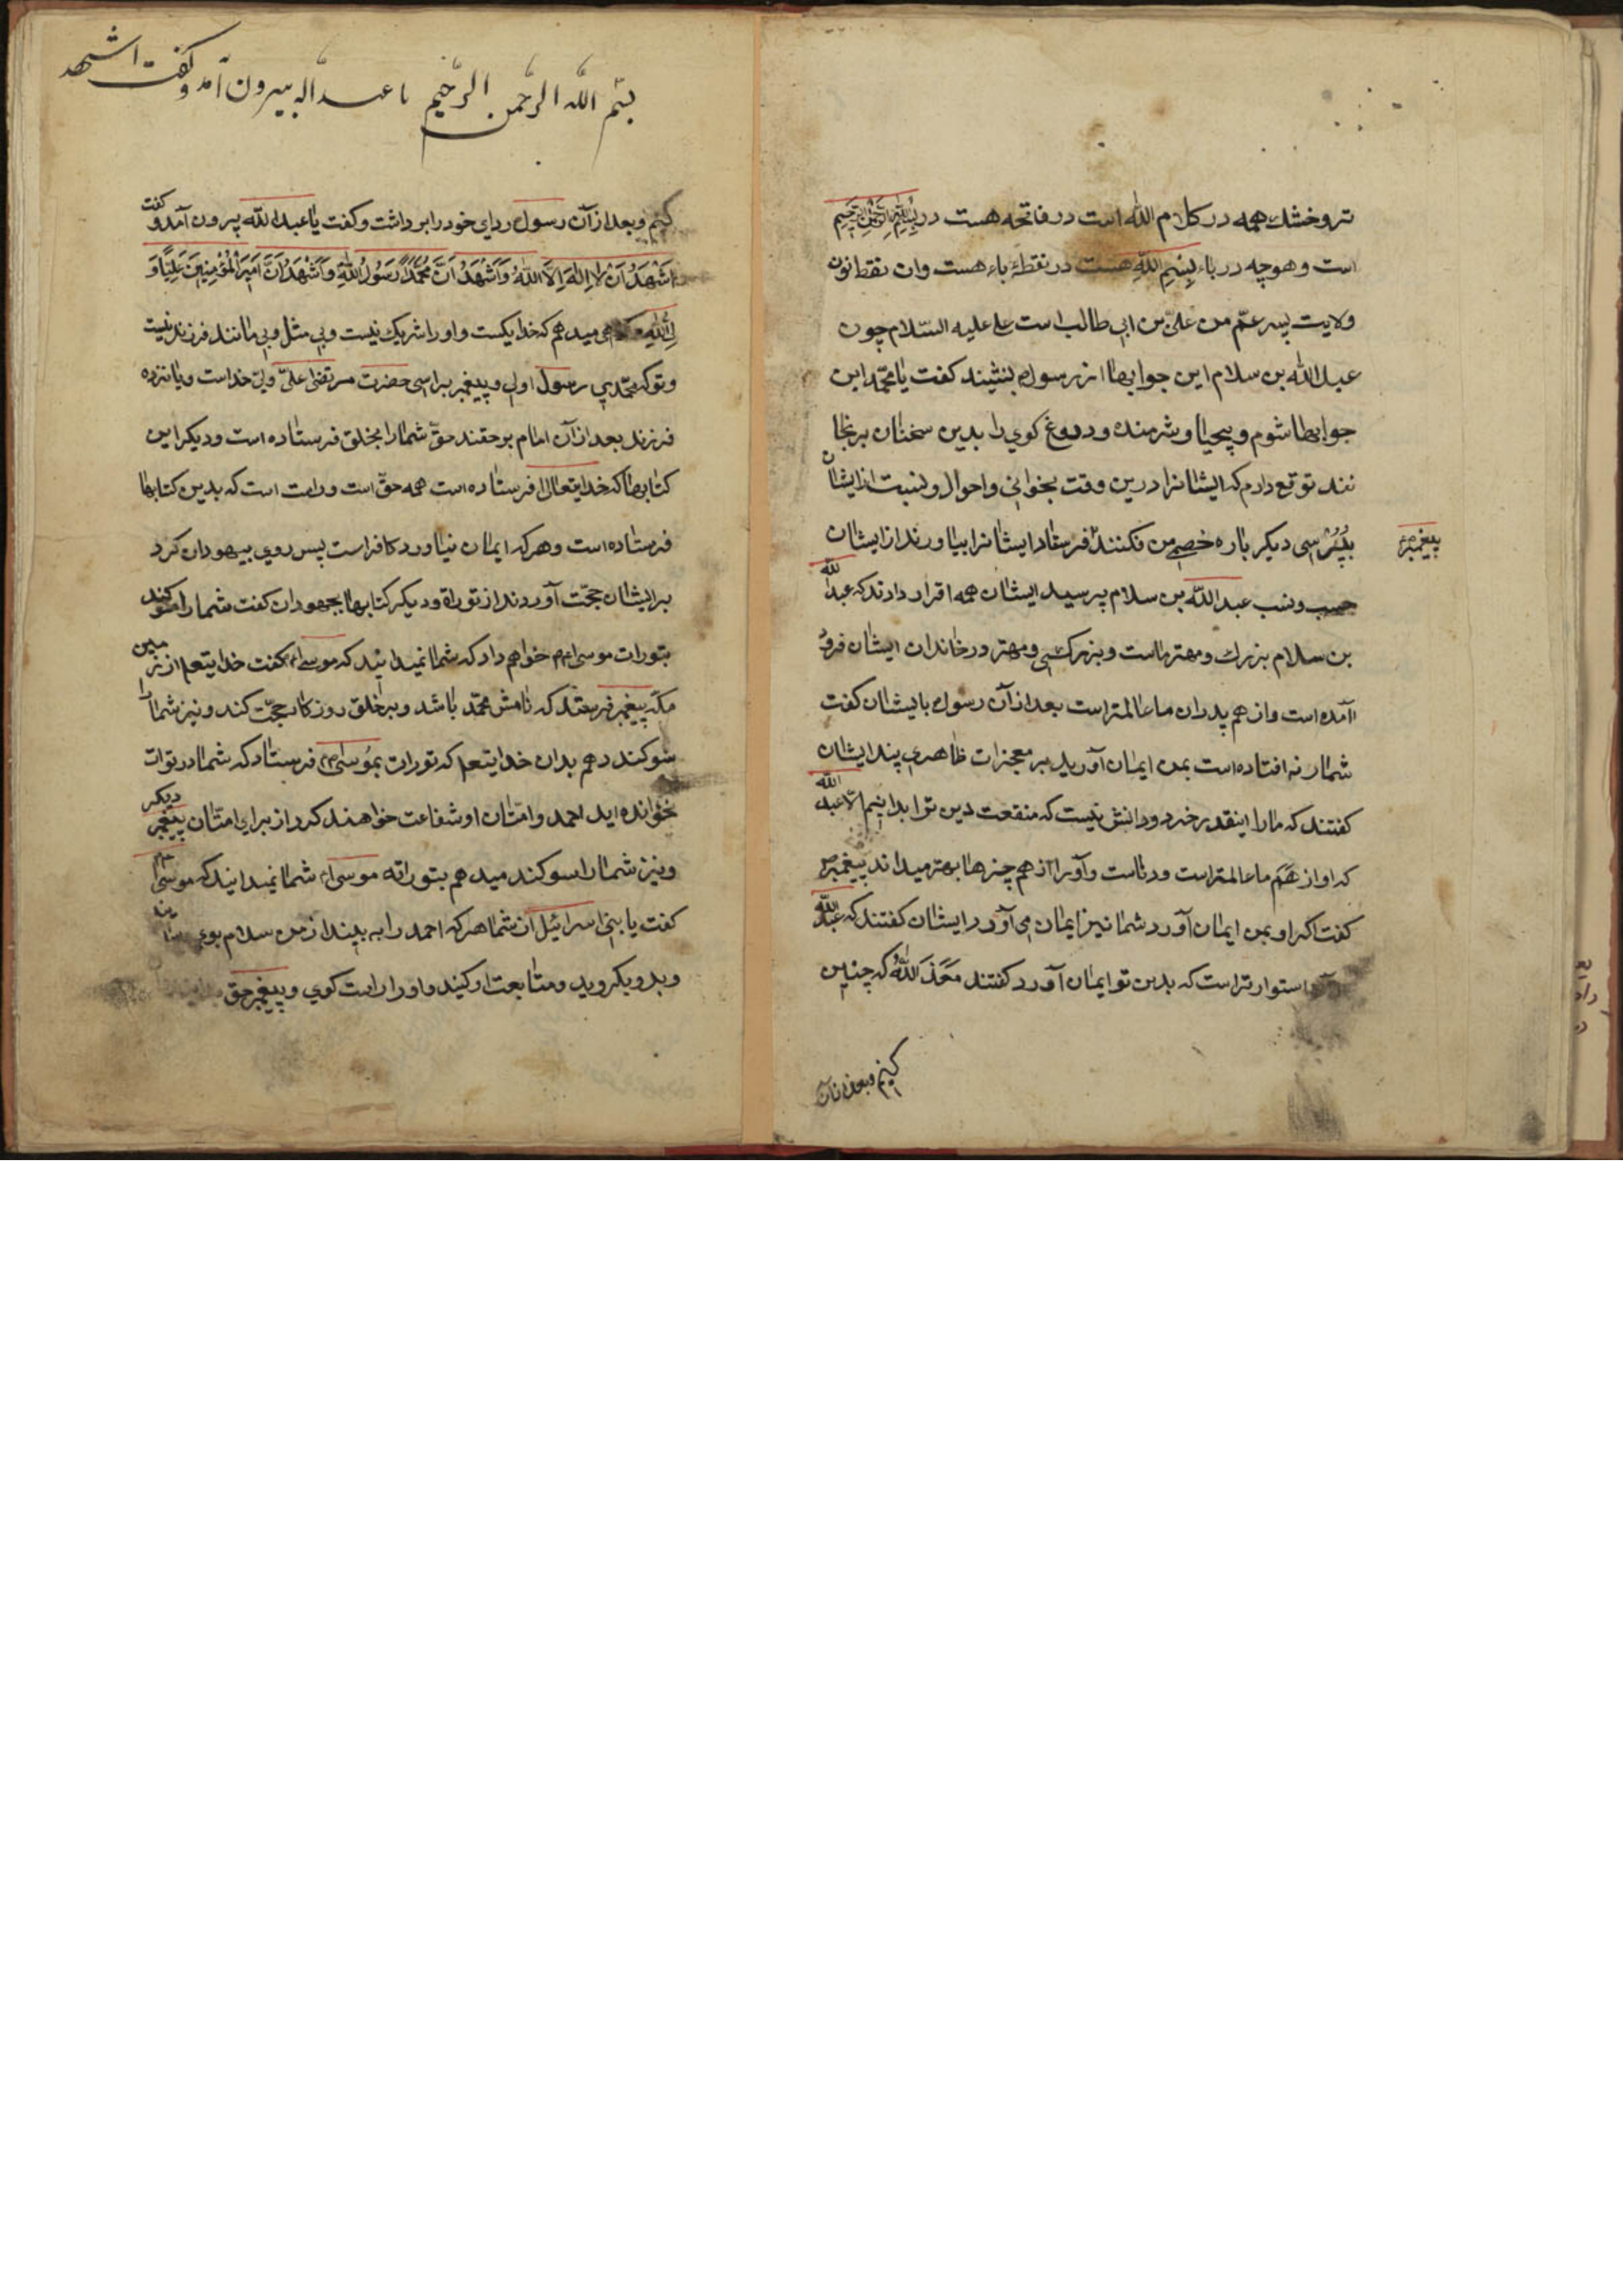 تر و خشك همه در كلام الله است در فاتحه هست در بسم الله الرحمن الرحيم
است و هرچه در باء بسم الله هست در نقطهٔ باء هست وان نقط نون
ولايت پسر عمّ من علىّ بن ابى طالب است على عليه السّلام چون
عبد الله بن سلام اين جوابها از رسول بشنيد كفت يا محمّد اين
جوابها شوم و بيحيا و شرمنده و دروغ كوي را بدين سخنان برنجا
نند توقع دارم كه ايشانرا درين وقت بخوانى واحوال و نسبت از ايشان
بپرسى ديكر باره خصمى من نكنند فرستاد ايشانرا بياورند از ايشان
پيغمبر
حسب و نسب عبد الله بن سلام پرسيد ايشان همه اقرار دارند كه عبد الله
بن سلام بزرك و مهتر ماست و بزركى و مهتر در خاندان ايشان فرود
آمده است و از هم پدران ما عالمتر است بعد از آن رسول بايشان كفت
شمار نه افتاده است بمن ايمان آوريد بر معجزات ظاهرى پند ايشان
كفتند كه ما را اينقدر خرد و دانش نيست كه منفعت دين ترا بدانيم الّا عبد الله
كه او از هم ما عالمتر است و دناست و آو را از هم چيزها بهتر ميداند پيغمبر
كفت اكر او بمن ايمان آورد شما نيز ايمان مى آورد ايشان كفتند كه عبد الله
استوارتر است كه بدين تو ايمان آورد كفتند معذ الله كه چنين
كنيم و بعد از آن
بسم الله الرحمن الرحيم يا عبد اله بيرون آمد و كفت اشهد
كنيم و بعد از آن رسول رداي خود را برداشت و كفت يا عبد الله بيرون آمد و كفت
اشهد ان لا اله الا الله واشهد ان محمدا رسول الله واشهد ان امير المؤمنين عليا و
لى الله ميدهم كه خدا يكست و او را شريك نيست وبى مثل وبى مانند فرزند نيست
و تو كه محمّدى رسول اوى و پيغمبر براسى حضرت مرتضى علىّ ولىّ خداست و يانزده
فرزند بعد از آن امام برحقند حقّ شما را بخلق فرستاده است و ديكر اين
كتابها كه خدايتعالى فرستاده است همه حقّ است و راست است كه بدين كتابها
فرستاده است و هركه ايمان نياورد كافر است پس روي بيهودان كرد
بر ايشان حجّت آوردند از توراة و ديكر كتابها بجهودان كفت شما را سوكند
بتورات موسى خواهم داد كه شما نميدانيد كه موسى كفت خدايتعم از زمين
مكّه پيغمبر فرستد كه نامش محمّد باشد و بر خلق روزكار حجّت كند و نيز شما را
سوكند دهم بدان خدايتعم كه تورات بموسى فرستاد كه شما در تورات
نخوانده ايد احمد و امّتان او شفاعت خواهند كرد از براى امتّان پيغمبر ديكر
و نيز شما را سوكند ميدهم بتوراته موسى شما نميدانيد كه موسى
كفت يا بنى اسرائيل از شما هركه احمد را به بيند از من سلام بوى
و بدو بكرويد و متابعت او كنيد و او را راست كوي و پيغمبر حق